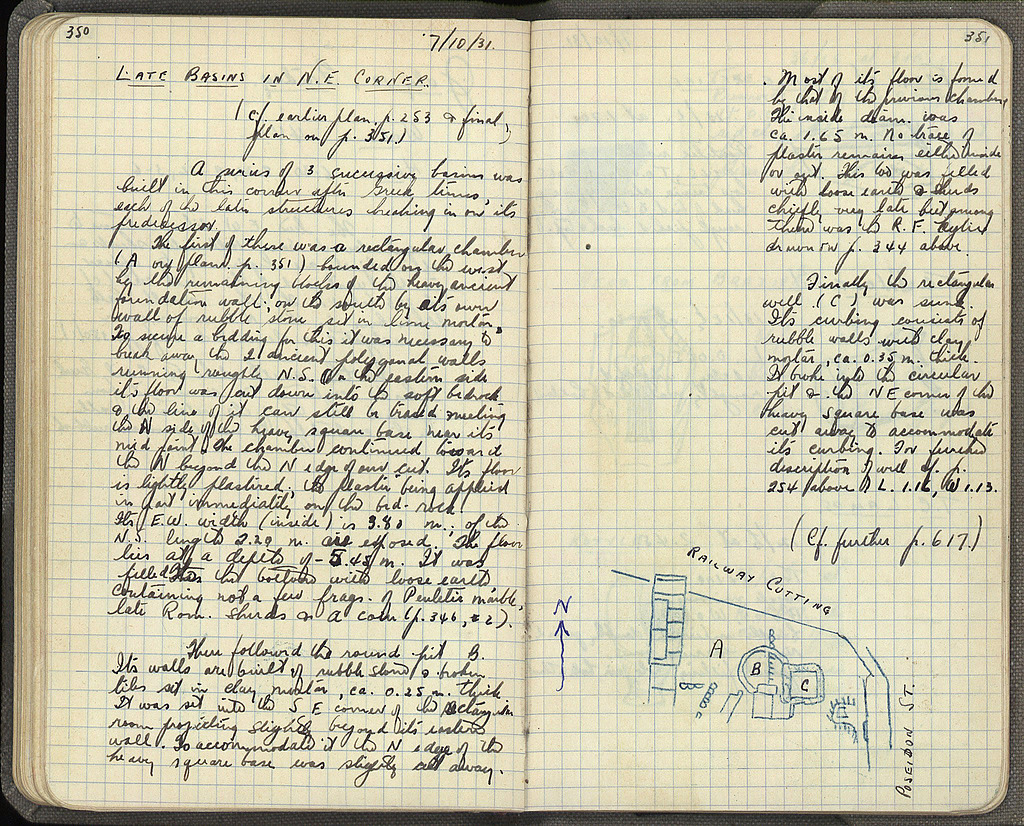 350
7/10/31.
LATE BASINS IN N.E. CORNER.
(Cf. earlier plan, p. 253 & final
plan on p. 351.)
A series of 3 successive basins was
built in this corner after Greek times,
each of the later structures breaking in on its
predecessor.
The first of these was a rectangular chamber
(A on plan p. 351) bounded on the west
by the remaining blocks of the heavy ancient
foundation wall; on the south by its own
wall of rubble stone set in lime mortar.
To secure a bedding for this it was necessary to
break away the 2 ancient polygonal walls
running roughly N.S. On the eastern side
its floor was cut down into the soft bedrock
& the line of it can still be traced meeting
the N side of the heavy square base near its
mid point. The chamber continued toward
the N beyond the N edge of our cut. Its floor
is lightly plastered, the plaster being applied
in part immediately on the bed-rock.
Its E.W. width (inside) is 3.80 m.; of the
N.S. length 2.20 m. are exposed. The floor
lies at a depth of -5.45 m. It was
filled to the bottom with loose earth
containing not a few frags. of Pentelic marble,
late Rom. sherds & a coin (p. 346, #2).
There followed the round pit B.
Its walls are built of rubble stone & broken
tiles set in clay mortar, ca. 0.25 m. thick.
It was set into the S E corner of the rectangular
room projecting slightly beyond its eastern
wall. To accommodate it the N edge of the
heavy square base was slightly cut away.
351
Most of its floor is formed
by that of the previous chamber.
The inside diam. was
ca. 1.65 m. No trace of
plaster remains either inside
or out. This too was filled
with loose earth & sherds
chiefly very late but among
them was the R.F.
drawn on p. 344 above.
Finally the rectangular
well (C) was sunk.
Its curbing consists of
rubble walls with clay
mortar, ca. 0.35 m. thick.
It broke into the circular
pit & the NE corner of the
heavy square base was
cut away to accommodate
its curbing. For further
description of well cf. p.
254 above L. 1.16, W 1.13.
(Cf. further p. 617.)
RAILWAY CUTTING
N
A
B
C
POSEIDON ST.